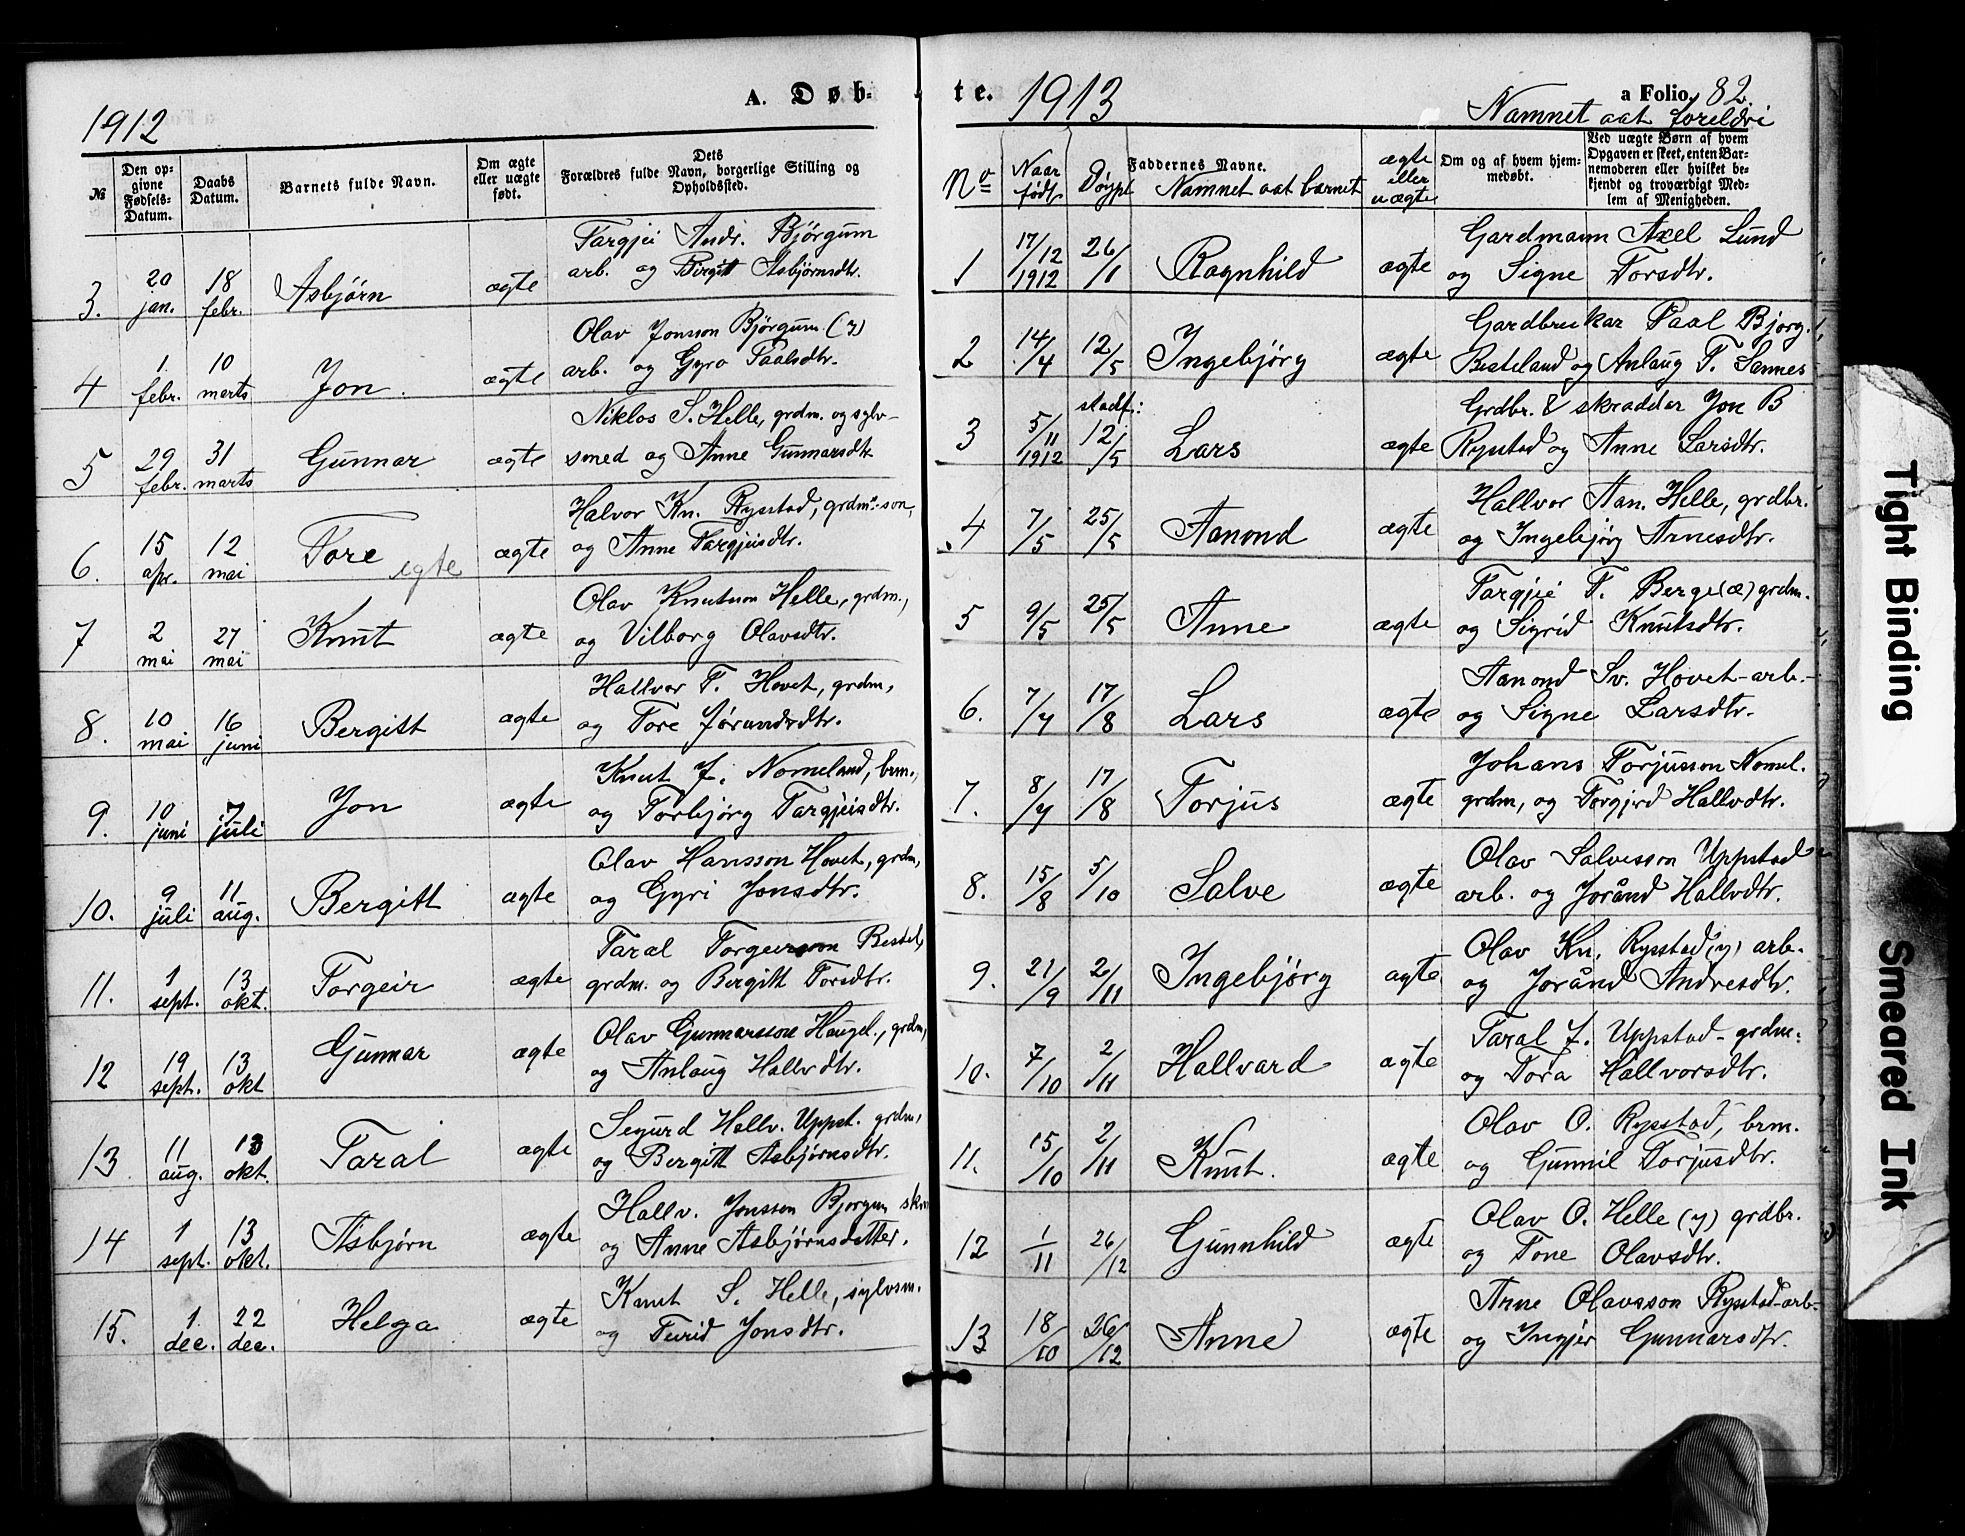 A. Døb-
1912
№
Den op-
givne
Fødsels-
Datum.
Daabs
Datum.
Barnets fulde Navn.
Om ægte
eller uægte
født.
Dets
Forældres fulde Navn, borgerlige Stilling og
Opholdssted.
3. 20 jan. 18 febr. Asbjørn ægte Targjei Andr. Bjørgum
arb. og Birgitt Asbjørnsdtr.
4 1. febr. 10 marts Jon. ægte Olav Jonsson Bjørgum (y)
arb. og Gyro Paalsdtr.
5 29 febr. 31 marts Gunnar ægte Niklos S. Helle, grdm. og sylv-
smed og Anne Gunnarsdtr
6. 15 apr. 12 mai Tore egte ægte Halvor Kn. Rysstad, grdm.-son,
og Anne Targjeisdtr.
7 2 mai 27 mai Knut ægte Olav Knutson Helle, grdm.,
og Vilborg Olavsdtr.
8. 10 mai 16 juni Bergitt ægte Hallvor T. Hovet, grdm,
og Tore Jørundsdtr.
9. 10 juni 7 juli Jon ægte Knut J. Nomeland, brm.,
og Torbjørg Targjeisdtr.
10. 9 juli 11 aug. Bergitt ægte Olav Hansson Hovet, grdm,
og Gyri Jonsdtr.
11. 1 sept. 13 okt. Torgeir ægte Taral Torgeirson Bestel,
grdm. og Bergitt Torsdtr.
12 19 sept. 13 okt Gunnar ægte Olav Gunnarsson Haugel., grdm,
og Anlaug Hallvdtr.
13 11 aug. 13 okt. Taral ægte Segurd Hallv. Uppst. grdm,
og Bergitt Asbjørnsdtr.
14 1 sept. 13 okt. Asbjørn ægte Hallv. Jonsson Bjorgum skm
og Anne Asbjørnsdatter.
15. 1. dec. 22 dec. Helga ægte Knut S. Helle, sylvsm.
og Turid Jonsdtr.
te. 1913 a Folio. 82.
Namnet aat foreldri
No
Naar
født
Døypt
Faddernes Navne.
Namnet aat barnet
ægte
eller
uægte
Om og af hvem hjem-
medøbt.
Ved uægte Børn af hvem
Opgaven er skeet, enten Bar-
nemoderen eller hvilket be-
kjendt og troværdigt Med-
lem af Menigheden.
1 17/12 1912 26/1 Ragnhild ægte Gardmann Axel Lund
og Signe Torsdtr.
2 14/4 12/5 Ingebjørg ægte Gardbrukar Paal Bjorg.
Besteland og Anlaug T. Sannes
3 5/11 1912 stadf.: 12/5 Lars ægte Grdbr. & skradder Jon B
Rysstad og Anne Larsdtr.
4 7/5 25/5 Aanond ægte Hallvor Aan. Helle, grdbr.
og Ingebjørg Arnesdtr.
5 9/5 25/5 Anne ægte Targjei T. Berge (æ) grdm.
og Sigrid Knutsdtr.
6. 7/7 17/8 Lars ægte Aanond Sv. Hovet-arb.-
og Signe Larsdtr.
7. 8/7 17/8 Torjus ægte Johans Torjusson Nomel.
grdm, og Torgjerd Hallvdtr.
8. 15/8 5/10 Salve ægte Olav Salvesson Uppstad
arb. og Joránd Hallvdtr.
9. 21/9 2/11 Ingebjörg ægte Olav Kn. Rysstad (y) arb.
og Joránd Andresdtr.
10. 7/10 2/11 Hallvard ægte Taral J. Uppstad - grdm.
og Tora Hallvorsdtr.
11. 15/10 2/11 Knut. ægte Olav O. Rysstad, brm.
og Gunnil Torjusdtr.
12 1/11 26/12 Gunnhild ægte Olav O. Helle (y) grdbr.
og Tone Olavsdtr.
13 18/10 26/12 Anne ægte Arne Olavsson Rysstad-arb-
og Ingjer Gunnarsdtr.
Tight Binding
Smeared Ink